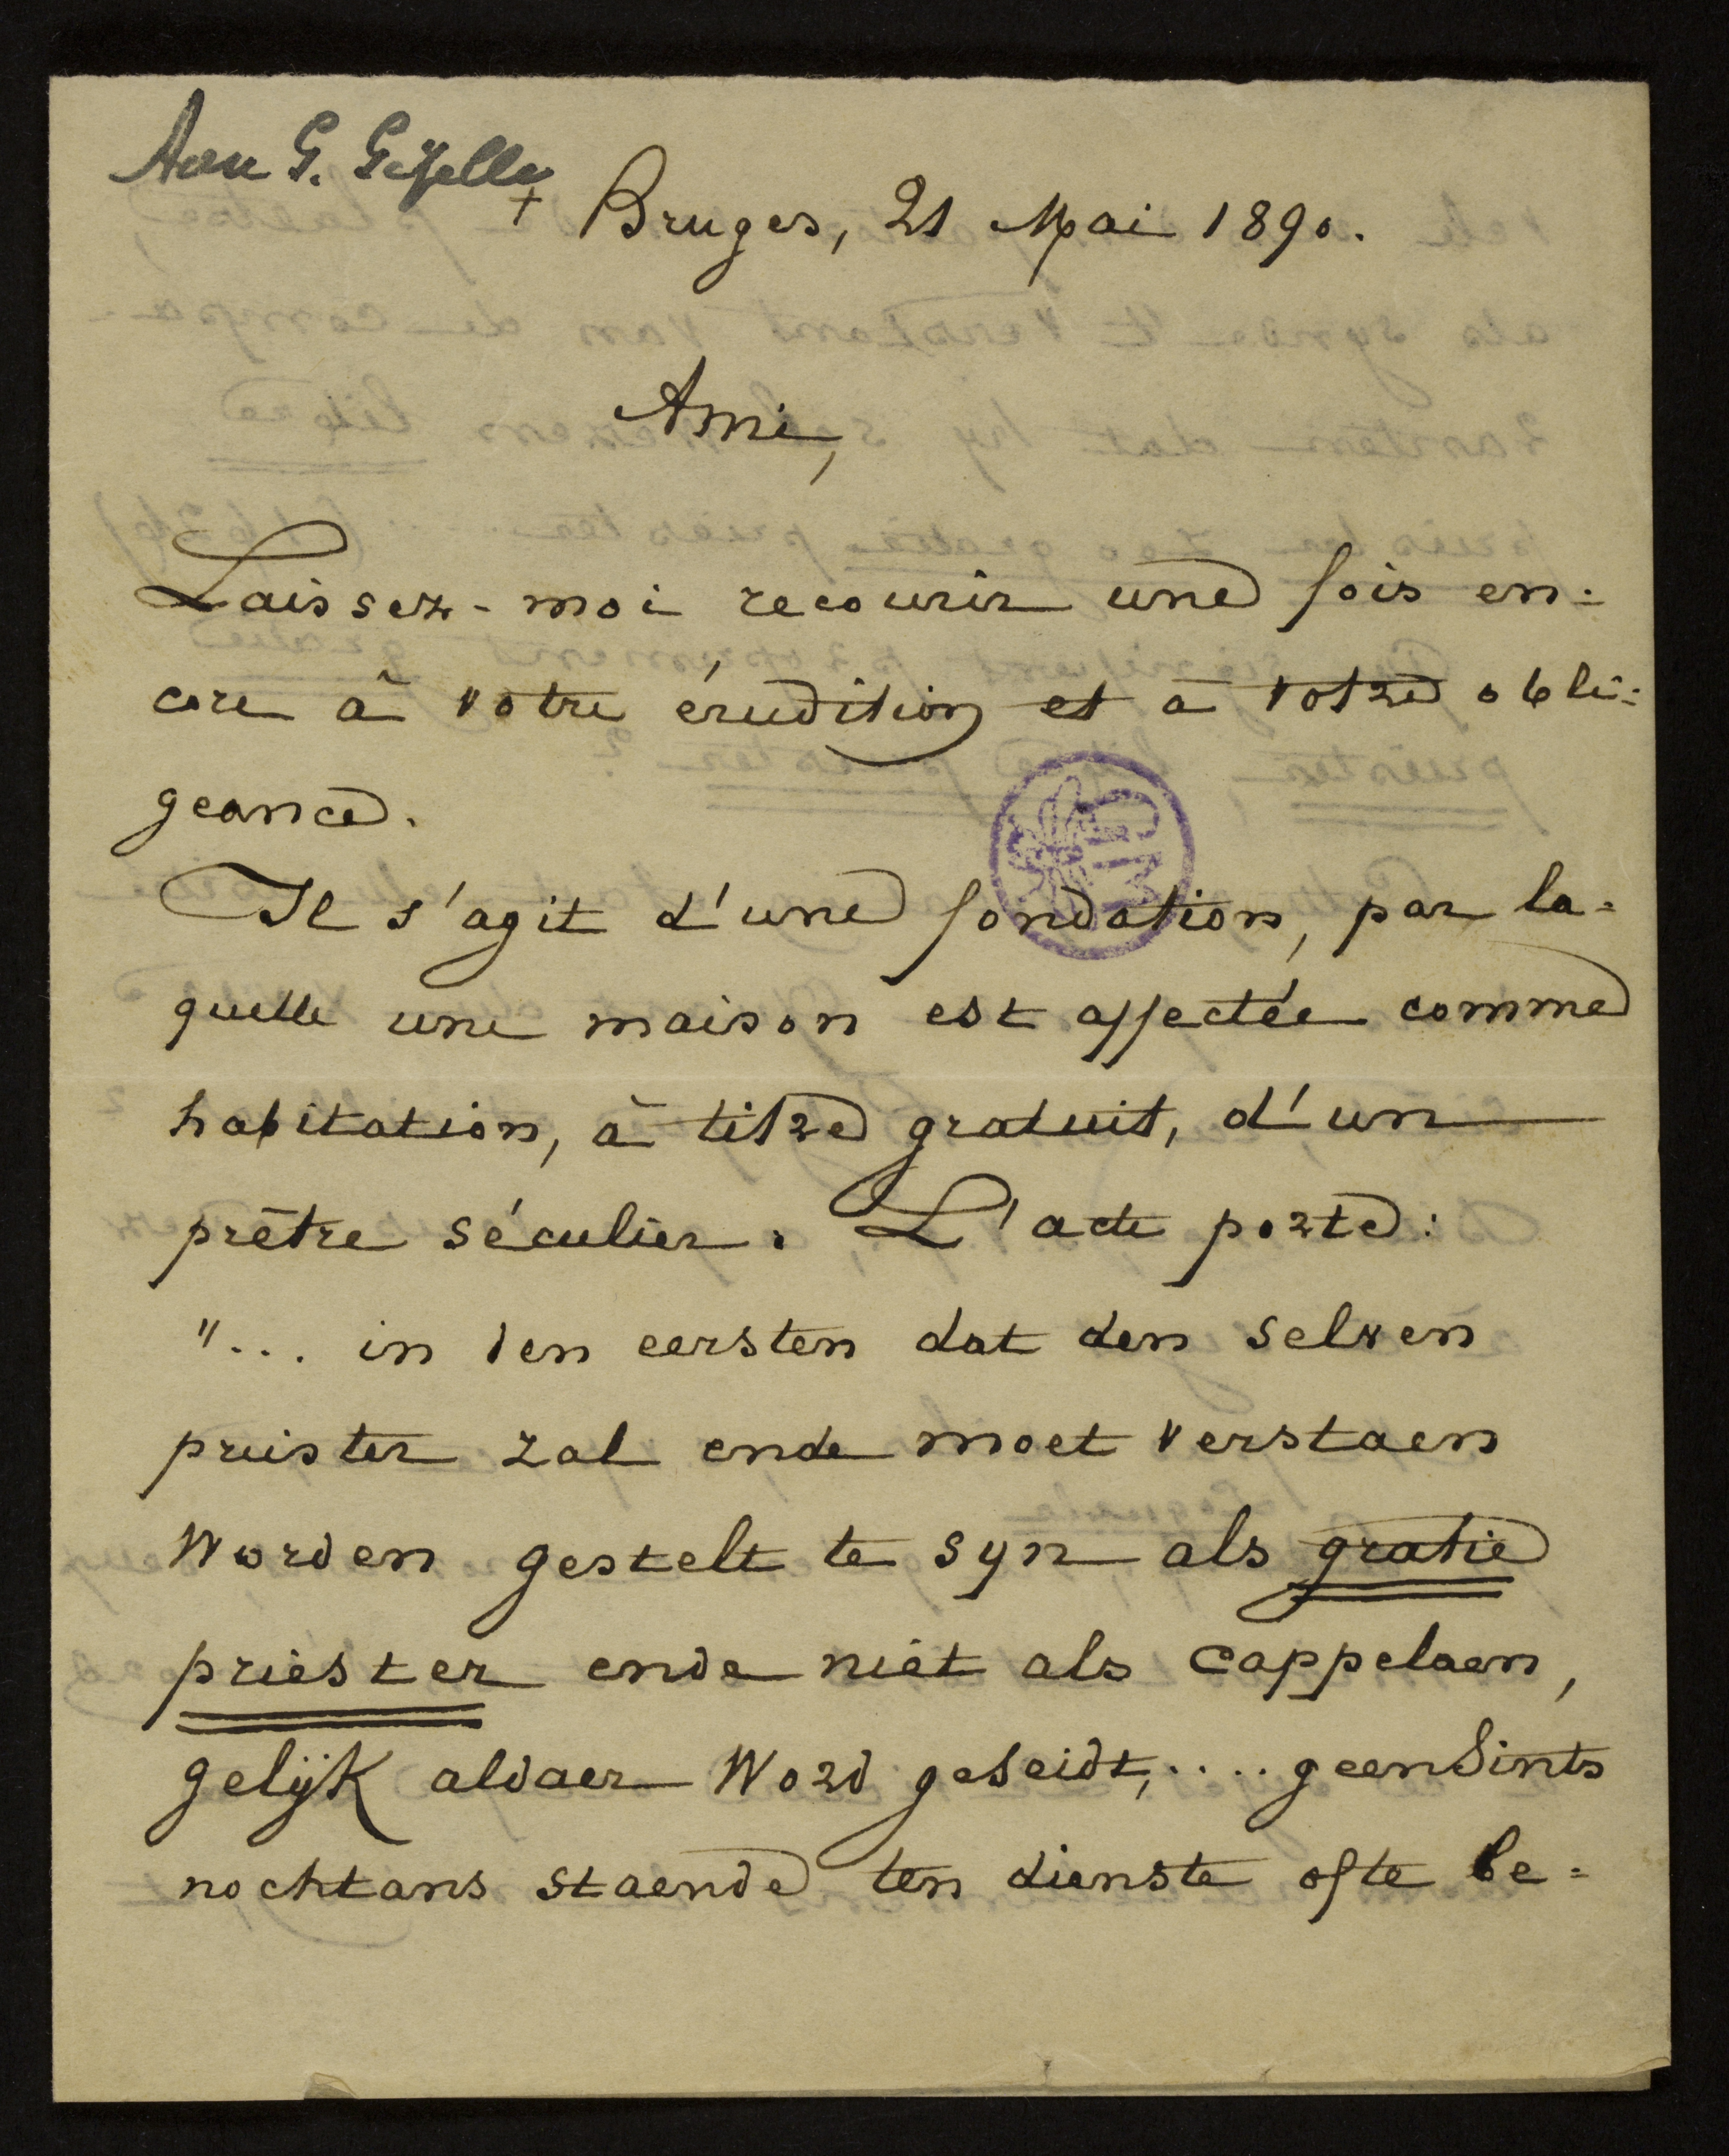 Aan G. Gezelle
+ Bruges, 21 Mai 1890.
Ami,
Laissez-moi recourir une fois en=
core à votre érudition et à votre obli=
geance.
Il s'agit d'une fondation, par la=
quelle une maison est affectée comme
habitation, à titre gratuit, d'un
prêtre séculier. L'acte porte:
"... in den eersten dat den selven
priester zal ende moet verstaen
worden gestelt te syn als gratie
priester ende niet als cappelaen,
gelijk aldaer word geseidt,.... geensints
nochtans staende ten dienste ofte be=